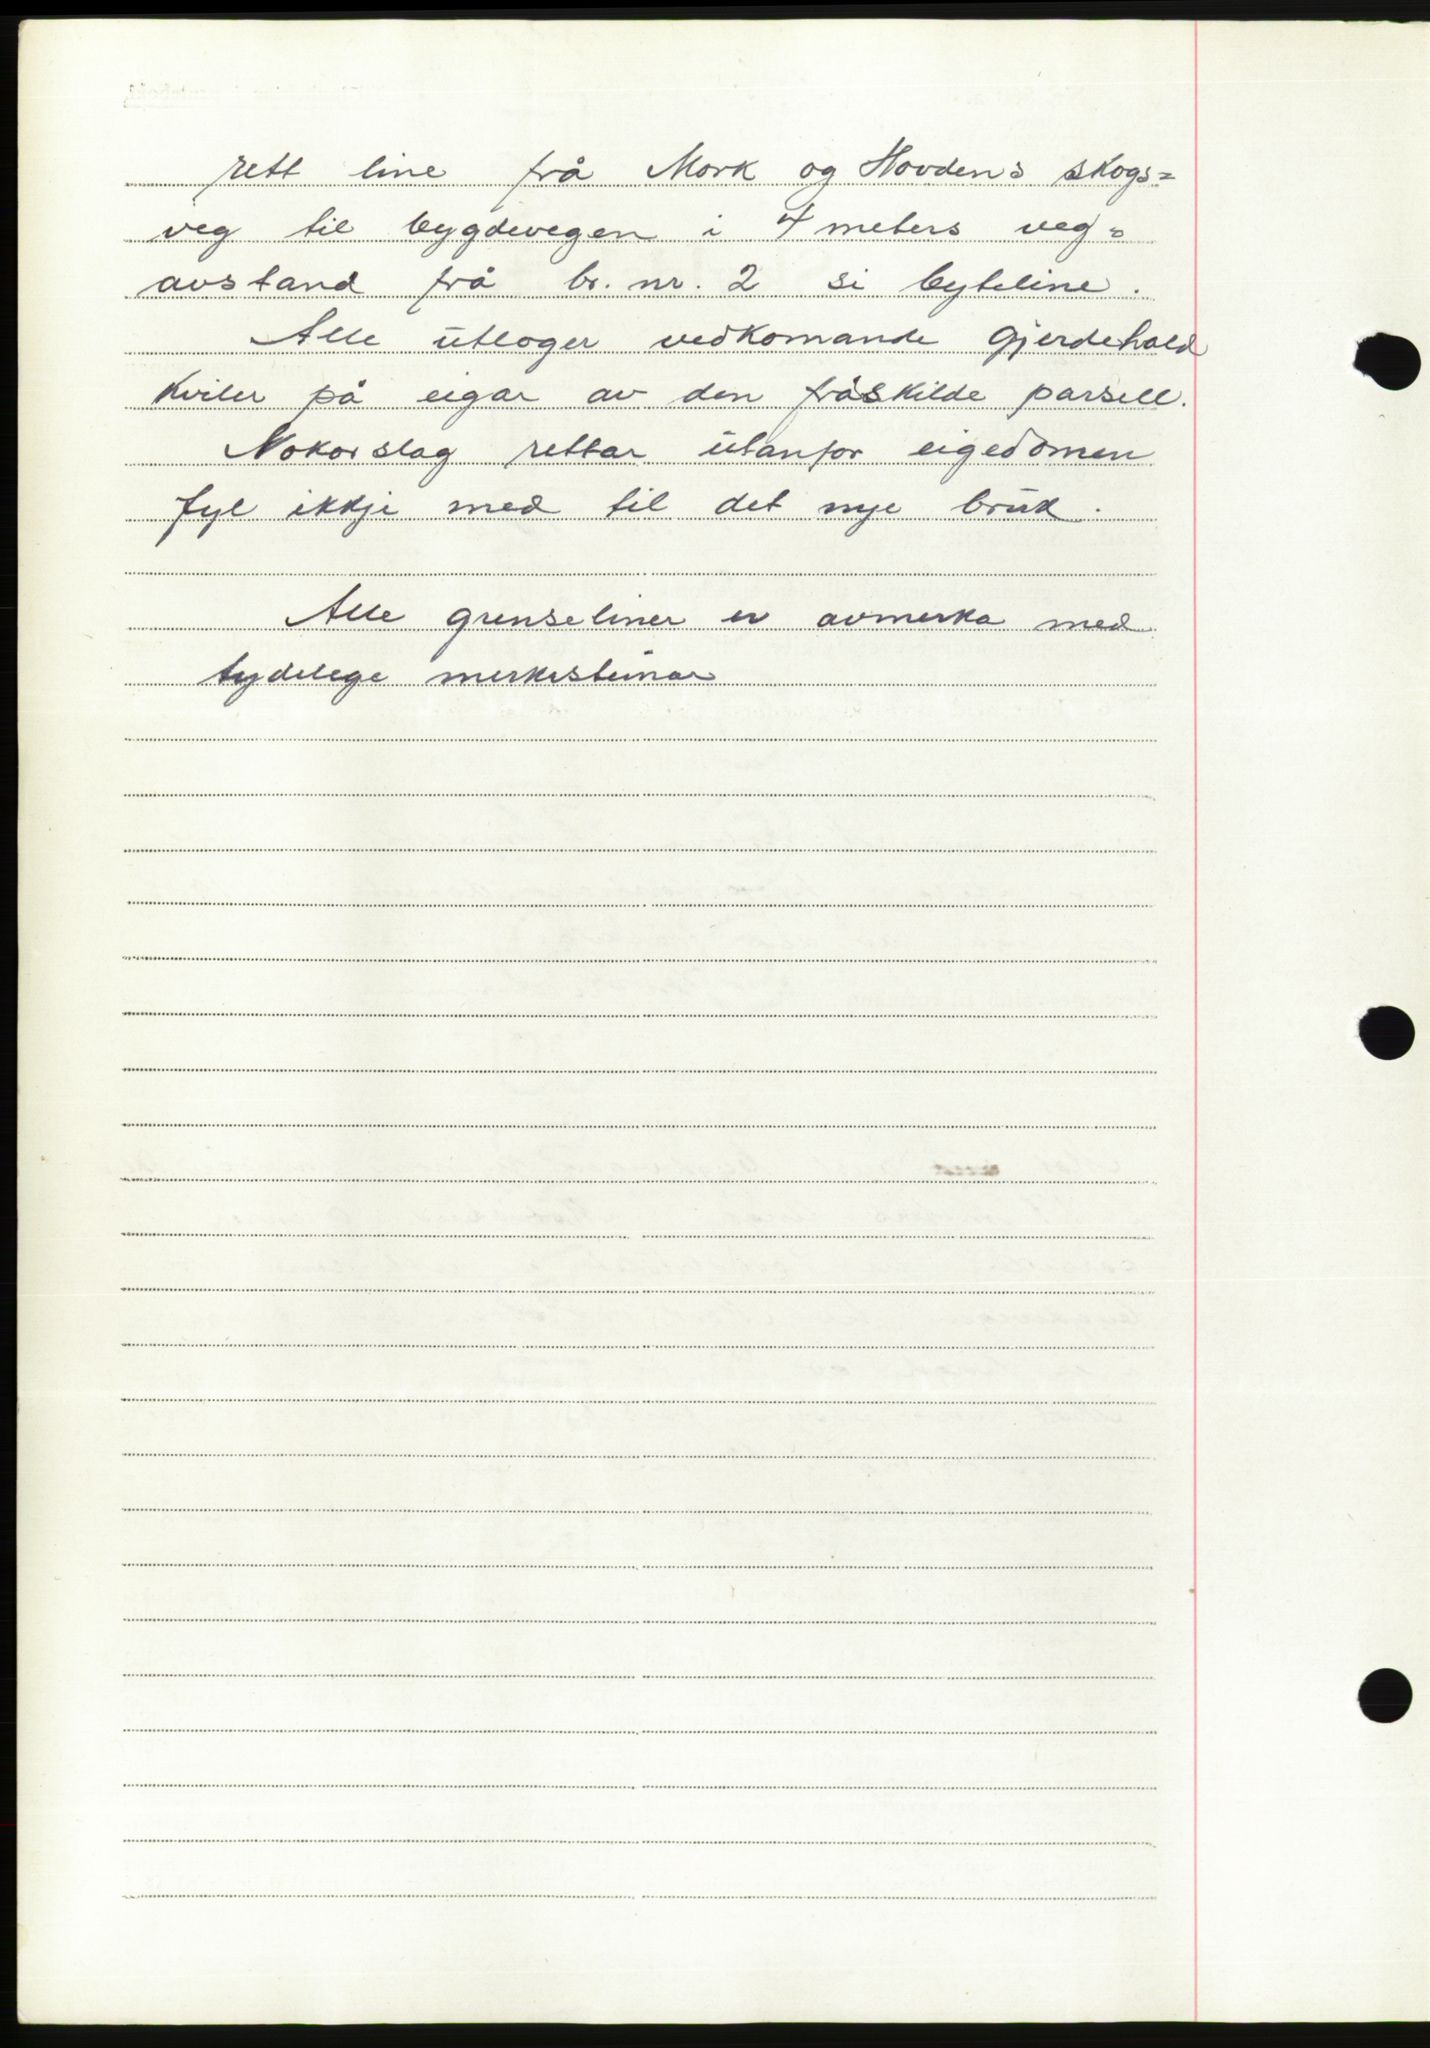 rett line frå Mork og Hovdens skogs=
veg til bygdevegen i 4 meters veg=
avstand frå br. nr. 2 si byteline.
Alle utloger vedkomande gjerdehald
kviler på eigar av den fråskilde parsell.
Nokorslag rettar utanfor eigedomen
fyl ikkje med til det nye bruk.
Alle grenseliner er avmerka med
tydelege merkesteinar